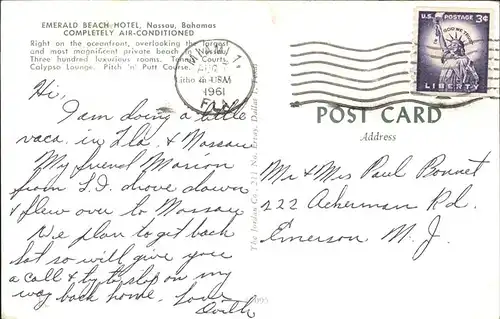 EMERALD BEACH HOTEL, Nassau, Bahamas
COMPLETELY AIR-CONDITIONED
Right on the oceanfront, overlooking the largest
and most magnificent private beach in Nassau.
Three hundred luxurious rooms. Tennis Courts,
Calypso Lounge. Pitch 'n' Putt Course.
Litho in USA
MIAMI
1961
FLA
U.S. POSTAGE 3¢
IN GOD WE TRUST
LIBERTY
POST CARD
Address
Hi,
I am doing a little
vaca. in Fla. & Nassau
My friend Marion
from L.I. drove down
& flew over to Nassau
We plan to get back
sat so will give you
a call & try to stop on my
way back home. Love
The Jordan Co., 211 No. Ervay, Dallas 1, Texas
Mr & Mrs Paul Bonnet
222 Ackerman Rd.
Emerson, N. J.